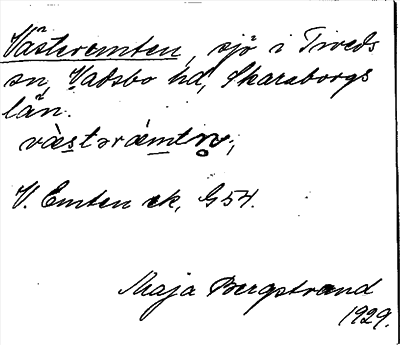 Västeremten, sjö i Tiveds
sn, Vadsbo hd, Skaraborgs
län.
væ̀stəræ̀mtn̥;
V. Emten ek, G 54.
Maja Bergstrand
1929.